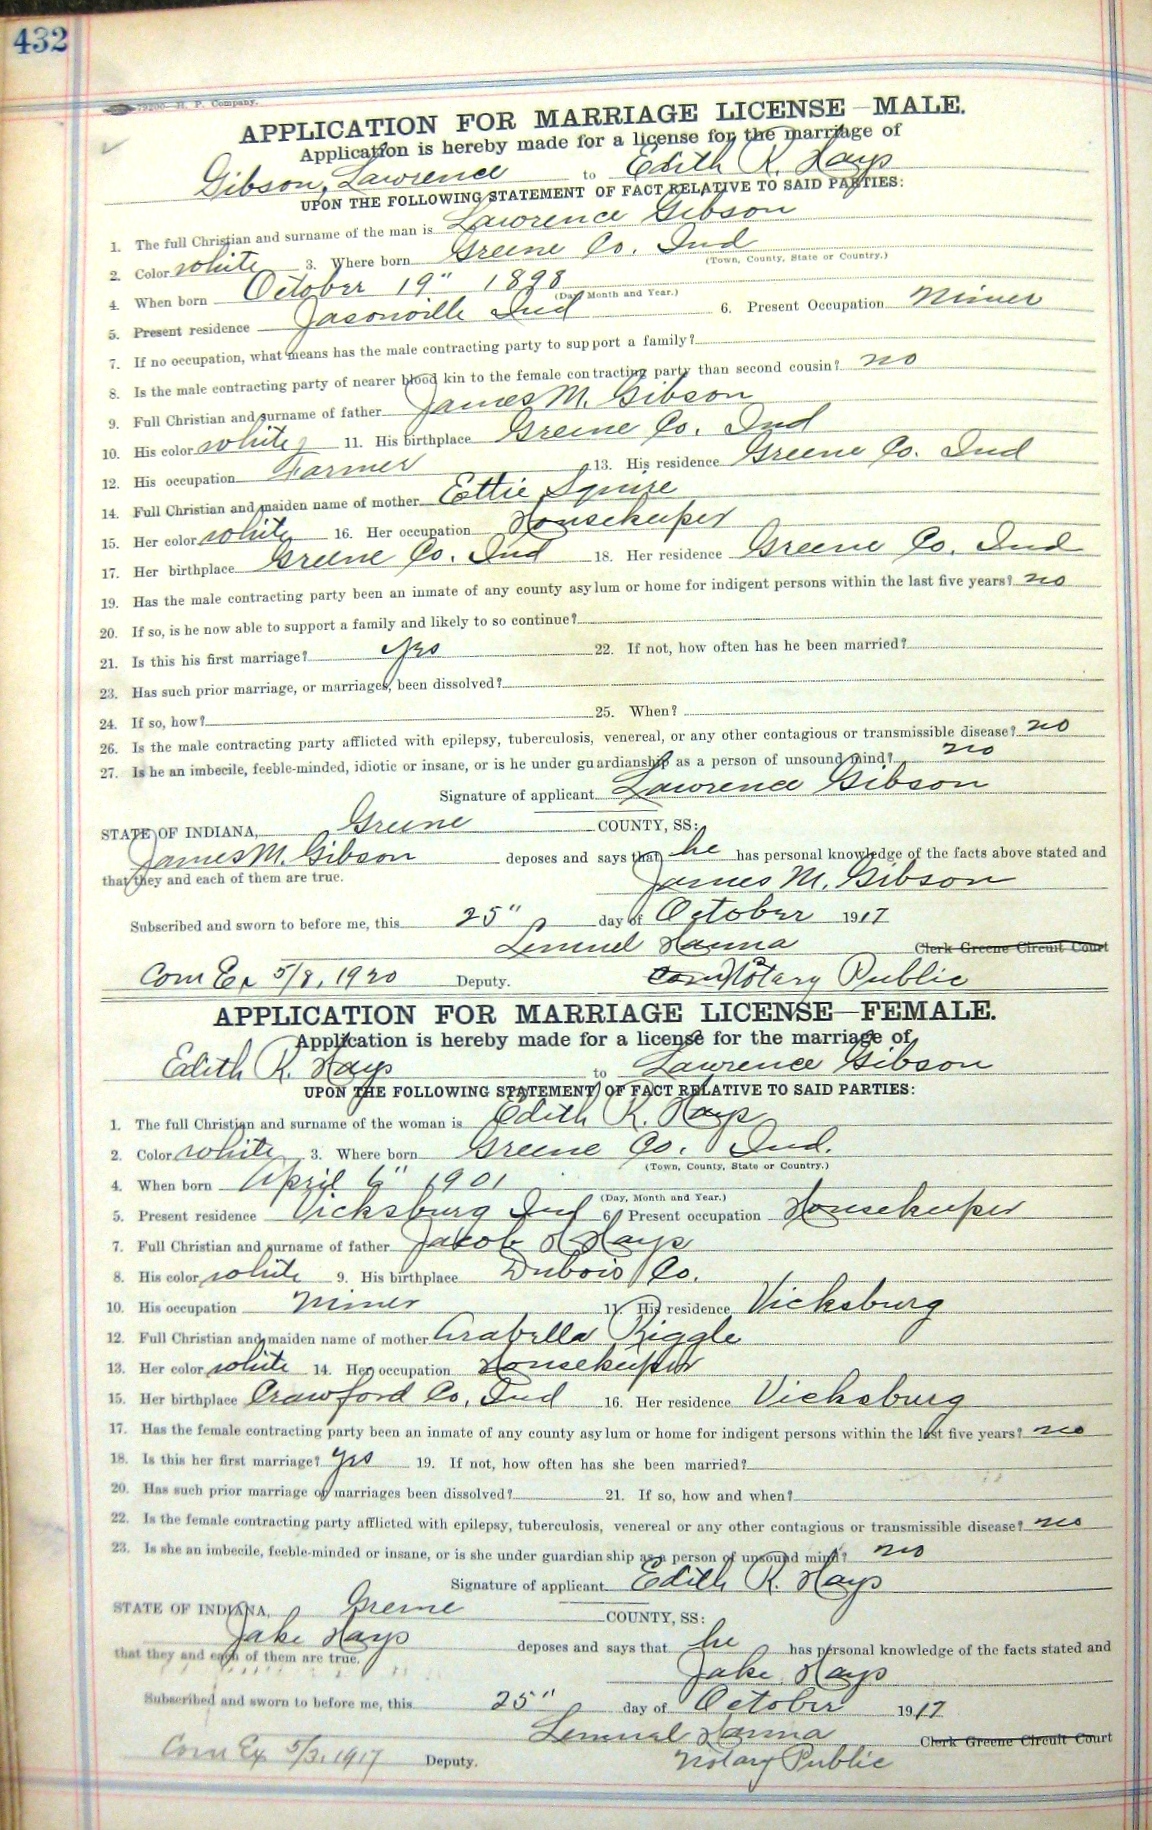 432
79200—H. P. Company.
APPLICATION FOR MARRIAGE LICENSE—MALE.
Application is hereby made for a license for the marriage of
Gibson, Lawrence to Edith R. Hays
UPON THE FOLLOWING STATEMENT OF FACT RELATIVE TO SAID PARTIES:
1. The full Christian and surname of the man is Lawrence Gibson
2. Color white 3. Where born Greene Co. Ind
(Town, County, State or Country.)
4. When born October 19" 1898
(Day, Month and Year.)
5. Present residence Jasonville Ind 6. Present Occupation Miner
7. If no occupation, what means has the male contracting party to support a family?
8. Is the male contracting party of nearer blood kin to the female contracting party than second cousin? no
9. Full Christian and surname of father James M. Gibson
10. His color white 11. His birthplace Greene Co. Ind
12. His occupation Farmer 13. His residence Greene Co. Ind
14. Full Christian and maiden name of mother Ettie Squire
15. Her color white 16. Her occupation Housekeeper
17. Her birthplace Greene Co. Ind 18. Her residence Greene Co. Ind
19. Has the male contracting party been an inmate of any county asylum or home for indigent persons within the last five years? no
20. If so, is he now able to support a family and likely to so continue?
21. Is this his first marriage? yes 22. If not, how often has he been married?
23. Has such prior marriage, or marriages, been dissolved?
24. If so, how? 25. When?
26. Is the male contracting party afflicted with epilepsy, tuberculosis, venereal, or any other contagious or transmissible disease? no
27. Is he an imbecile, feeble-minded, idiotic or insane, or is he under guardianship as a person of unsound mind? no
Signature of applicant Lawrence Gibson
STATE OF INDIANA, Greene COUNTY, SS:
James M. Gibson deposes and says that he has personal knowledge of the facts above stated and
that they and each of them are true.
James M. Gibson
Subscribed and sworn to before me, this 25" day of October 1917
Lemuel Hanna Clerk Greene Circuit Court
Com Ex 5/8, 1920 Deputy. Com Notary Public
APPLICATION FOR MARRIAGE LICENSE—FEMALE.
Application is hereby made for a license for the marriage of
Edith R. Hays to Lawrence Gibson
UPON THE FOLLOWING STATEMENT OF FACT RELATIVE TO SAID PARTIES:
1. The full Christian and surname of the woman is Edith R. Hays
2. Color white 3. Where born Greene Co. Ind.
(Town, County, State or Country.)
4. When born April 6" 1901
(Day, Month and Year.)
5. Present residence Vicksburg Ind 6. Present occupation Housekeeper
7. Full Christian and surname of father Jakob H Hays
8. His color white 9. His birthplace Dubois Co.
10. His occupation Miner 11. His residence Vicksburg
12. Full Christian and maiden name of mother Arabella Riggle
13. Her color white 14. Her occupation Housekeeper
15. Her birthplace Crawford Co. Ind 16. Her residence Vicksburg
17. Has the female contracting party been an inmate of any county asylum or home for indigent persons within the last five years? no
18. Is this her first marriage? yes 19. If not, how often has she been married?
20. Has such prior marriage or marriages been dissolved? 21. If so, how and when?
22. Is the female contracting party afflicted with epilepsy, tuberculosis, venereal or any other contagious or transmissible disease? no
23. Is she an imbecile, feeble-minded or insane, or is she under guardianship as a person of unsound mind? no
Signature of applicant Edith R. Hays
STATE OF INDIANA, Greene COUNTY, SS:
Jake Hays deposes and says that he has personal knowledge of the facts stated and
that they and each of them are true.
Jake Hays
Subscribed and sworn to before me, this 25" day of October 1917
Lemuel Hanna Clerk Greene Circuit Court
Com Ex 5/3, 1917 Deputy. Notary Public